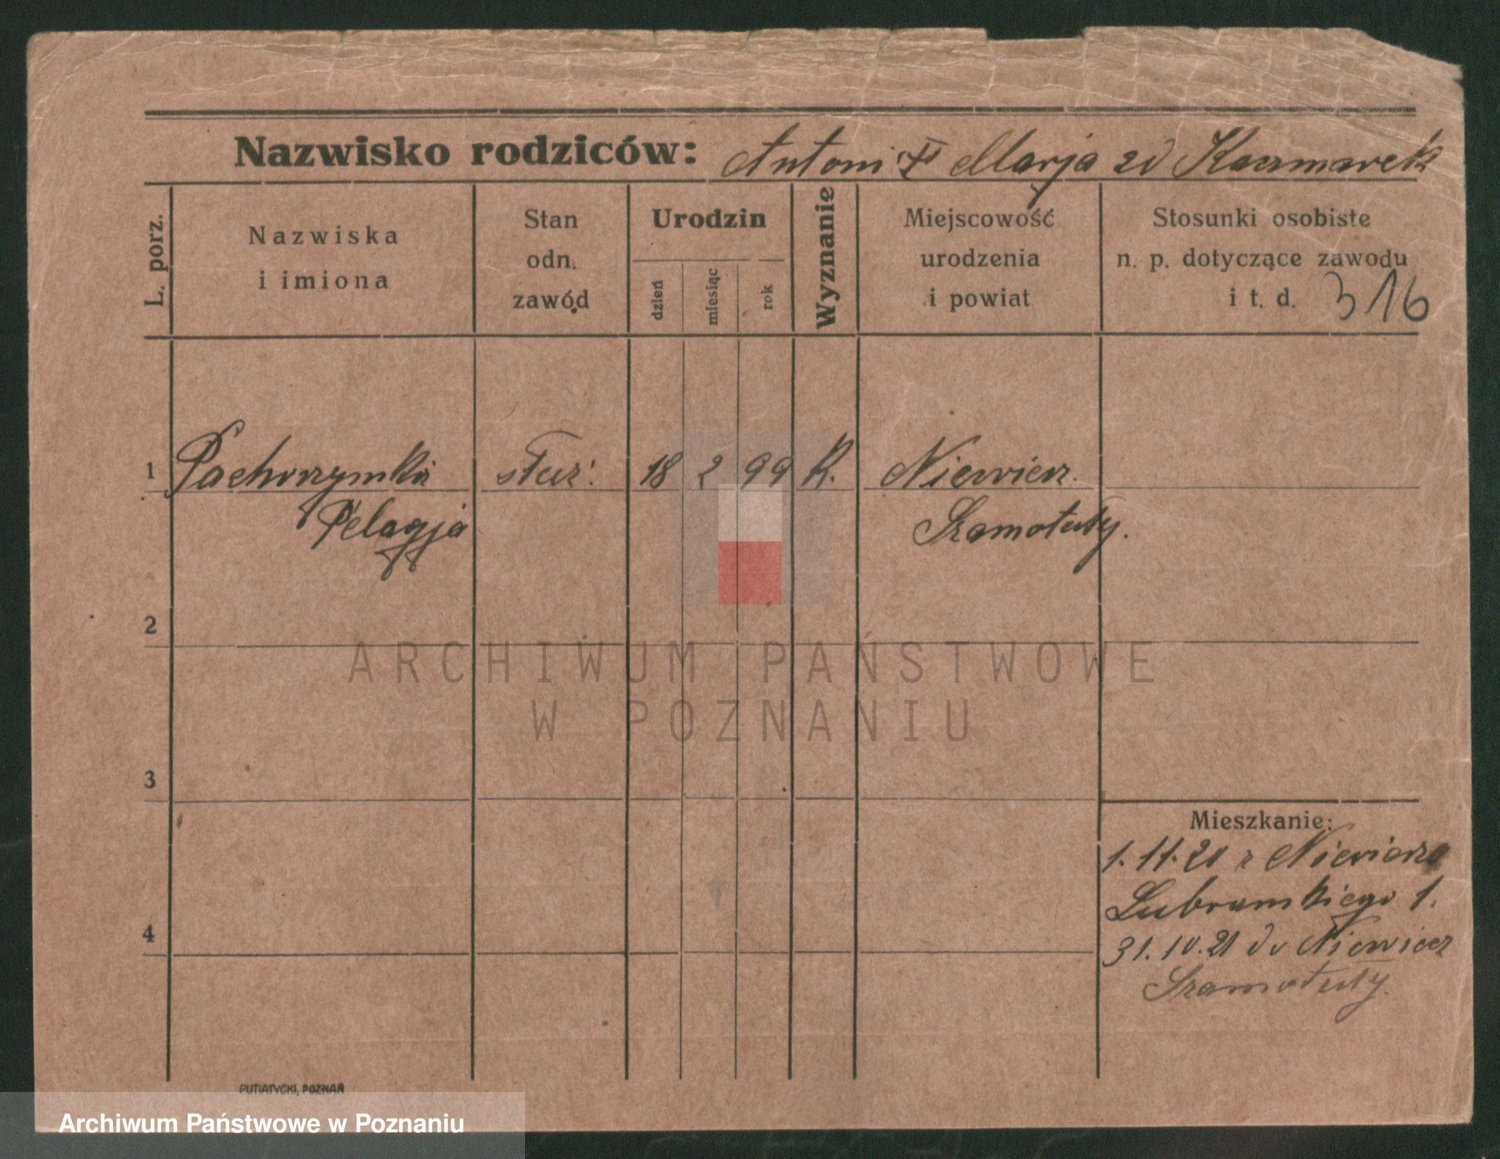 Nazwisko rodziców: Antoni i Marja zd Kaczmarek
L. porz.
Nazwiska
i imiona
Stan
odn.
zawód
Urodzin
dzień
miesiąc
rok
Wyznanie
Miejscowość
urodzenia
i powiat
Stosunki osobiste
n. p. dotyczące zawodu
i t. d. 316
1 Pachurzymka służ. 18 2 99 R. Niewierz.
Pelagja Szamotuły.
2
ARCHIWUM PAŃSTWOWE
W POZNANIU
3
Mieszkanie:
1.11.20 z Niewierza
Lubrańskiego 1.
4
31.10.21 do Niewierz
Szamotuły.
PUTIATYCKI, POZNAŃ
Archiwum Państwowe w Poznaniu